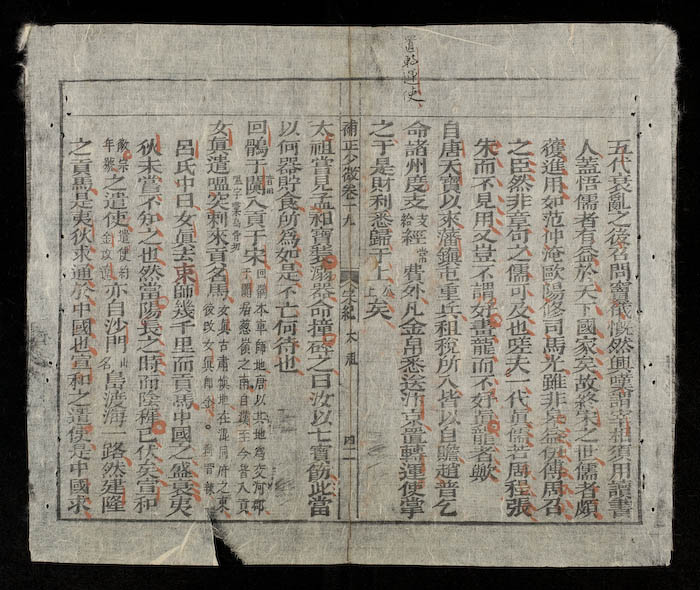 置轉運使
五代衰亂之後名問竇儀慨然興嘆謂宰相須用讀書
人蓋悟儒者有益於天下國家矣故終宋之世儒者頗
獲進用如范仲淹歐陽修司馬光雖非皋益伊傅周召
之臣然非章句之儒可及也嗟夫一代眞儒若周程張
朱而不見用又豈不謂好畵龍而不好眞龍者歟
自唐天寶以來藩鎭屯重兵租稅所入皆以自贍趙普乞
命諸州度支支給經常費外凡金帛悉送汴京置轉運使掌
之于是財利悉歸于上公上矣
補正少微卷十九 宋紀 太祖 四二
太祖嘗見孟昶寶裝溺器命撞碎之曰汝以七寶飾此當
以何器貯食所為如是不亡何待也
回鶻于闐入貢于宋回鶻本車師地唐以其地為交河郡于闐居葱嶺之南自漢至今皆入貢
女眞遣嗢突剌來貢名馬女眞古肅愼地在混同府之東後改女眞
呂氏中曰女眞去京師幾千里而貢馬中國之盛衰夷
狄未嘗不知之也然當陽長之時而陰種已伏矣宣和
徽宗年號之遣使遣使約金攻遼亦自沙門山名島渡海一路然建隆
之貢馬是夷狄求通於中國也宣和之遣使是中國求